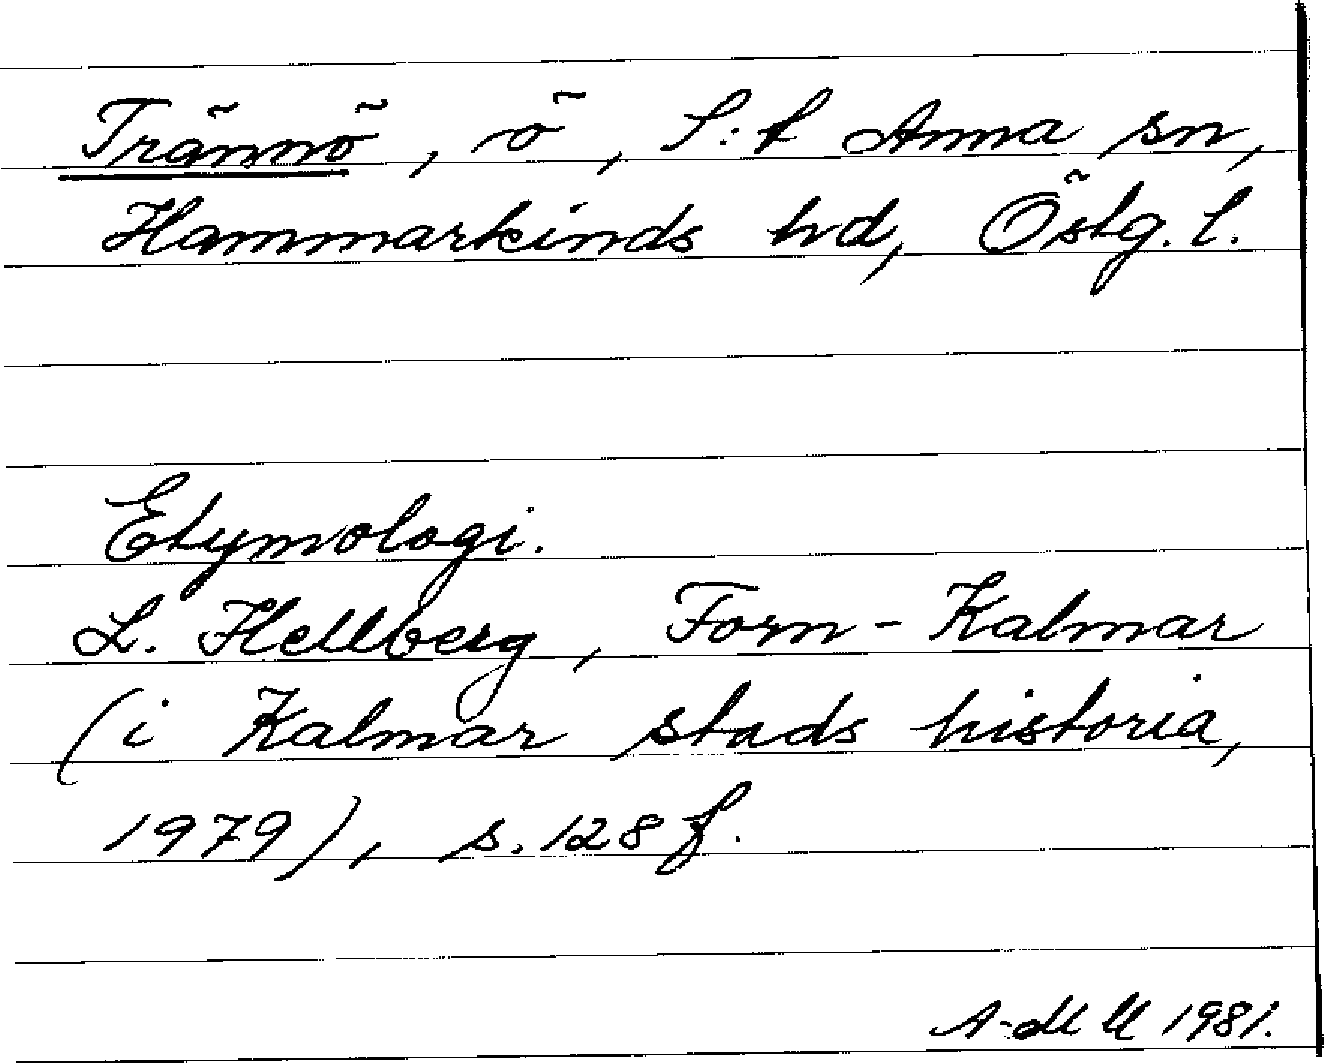 Trännö, ö, S:t Anna sn,
Hammarkinds hd, Östg. l.
Etymologi.
L. Hellberg, Forn-Kalmar
(i Kalmar stads historia,
1979), s. 128 f.
A-M U 1981.